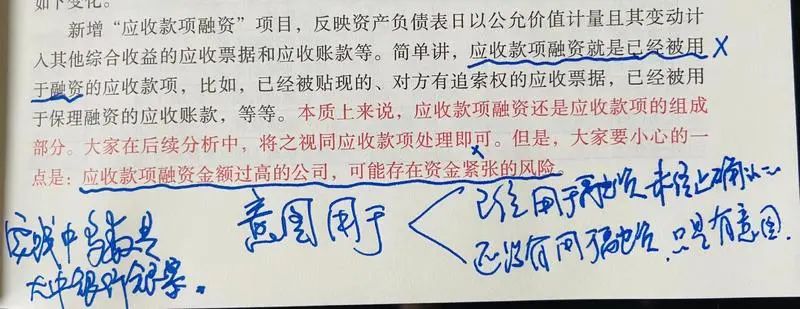 如下变化。
新增“应收款项融资”项目，反映资产负债表日以公允价值计量且其变动计
入其他综合收益的应收票据和应收账款等。简单讲，应收款项融资就是已经被用
于融资的应收款项，比如，已经被贴现的、对方有追索权的应收票据，已经被用
于保理融资的应收账款，等等。本质上来说，应收款项融资还是应收款项的组成
部分。大家在后续分析中，将之视同应收款项处理即可。但是，大家要小心的一
点是：应收款项融资金额过高的公司，可能存在资金紧张的风险。
意图用于
已经用于融资 未终止确认
还没有用于融资，只是有意图。
实践中多数是
大中银行